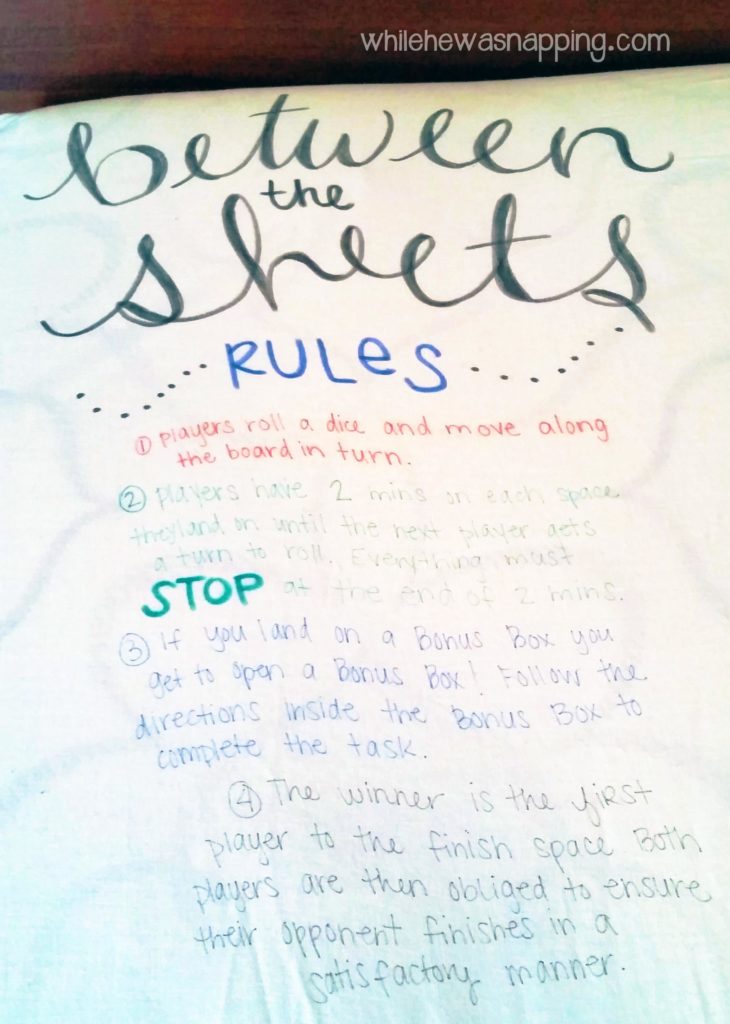 whilehewasnapping.com
between
the
sheets
RULes
① players roll a dice and move along
the board in turn.
② players have 2 mins on each space
they land on until the next player gets
a turn to roll. Everything must
STOP at the end of 2 mins.
③ If you land on a Bonus Box you
get to open a Bonus Box! Follow the
directions inside the Bonus Box to
complete the task.
④ The winner is the fiRST
player to the finish space Both
players are then obliged to ensure
their opponent finishes in a
satisfactory manner.